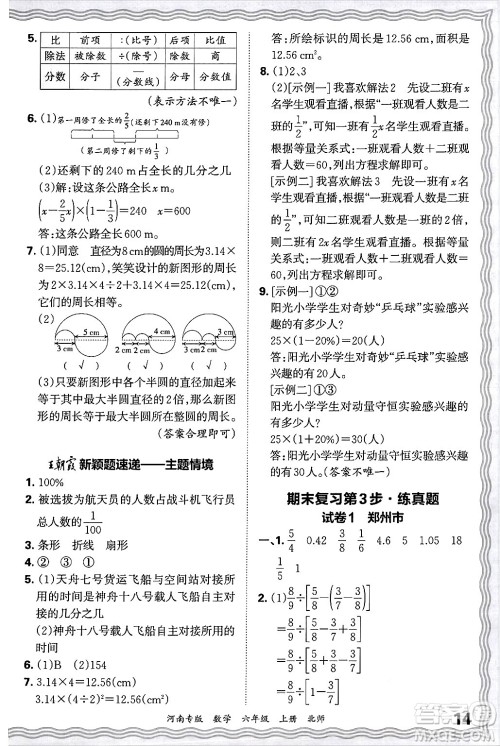 5. 比 前项 :(比号) 后项 比值
除法 被除数 ÷(除号) 除数 商
分数 分子 —(分数线) 分母 分数值
(表示方法不唯一)
6. (1) 第一周修了全长的2/5 (还剩下240 m没有修)
第二周修了剩下的1/3
(2)还剩下的240 m占全长的几分之几
(3)解:设这条公路全长x m。
(x-2/5x)×(1-1/3)=240 x=600
答:这条公路全长600 m。
7. (1)同意 直径为8 cm的圆的周长为3.14×
8=25.12(cm),笑笑设计的新图形的周长
为2×3.14×4÷2+3.14×4=25.12(cm),
它们的周长相等。
(2)
5 cm 4 cm
3 cm 3 cm 2 cm
( √ ) ( √ ) ( √ )
(3)只要新图形中各个半圆的直径之和等
于最大半圆的直径,那么新图形的周长就
与原来的最大半圆所在的整圆的周长相等。
(答案合理即可)
王朝霞 新颖题速递——主题情境
1. 100%
2. 被选拔为航天员的人数占战斗机飞行员总
人数的1/100
3. 条形 折线 扇形
4. ②③①
5. (1)天舟七号货运飞船与空间站对接大约
所用的时间是神舟十八号载人飞船自主对
接的几分之几
(2)神舟十八号载人飞船自主对接大约用
的时间
6. (1)B (2)154
7. 3.14×4=12.56(cm)
3.14×(4÷2)²=12.56(cm²)
答:所绘标识的周长是12.56 cm,面积是
12.56 cm²。
8. (1)2、3
(2)[示例一]我喜欢解法2 先设二班有x
名学生观看直播,根据“一班观看人数是二
班的1/2”,可知一班有1/2x名学生观看直播。
根据等量关系式:一班观看人数+二班观
看人数=60,列出方程解决问题。
[示例二]我喜欢解法3 先设一班有x名
学生观看直播,根据“一班观看人数是二班
的1/2”,可知二班观看人数是一班的2倍,
即二班有2x名学生观看直播。根据等量
关系式:一班观看人数+二班观看人数=
60,列出方程解决问题。(答案不唯一)
9. [示例一]①②
阳光小学学生对奇妙“乒乓球”实验感兴
趣的有多少人?
25×(1-1/5)=20(人)
答:阳光小学学生对奇妙“乒乓球”实验感
兴趣的有20人。
[示例二]①③
阳光小学学生对动量守恒实验感兴趣的有
多少人?
25×(1+3/5)=40(人)
答:阳光小学学生对动量守恒实验感兴趣
的有40人。(答案不唯一)
期末复习第3步·练真题
试卷1 郑州市
一、1. 5/4 0.42 3/8 1/6 4.6 5 1.05 18
1/3
2. (1) 8/9÷[5/8-(3/7-3/8)]
=8/9÷[5/8-3/7+3/8]
=8/9÷[5/8+3/8-3/7]
河南专版 数学 六年级 上册 北师
14